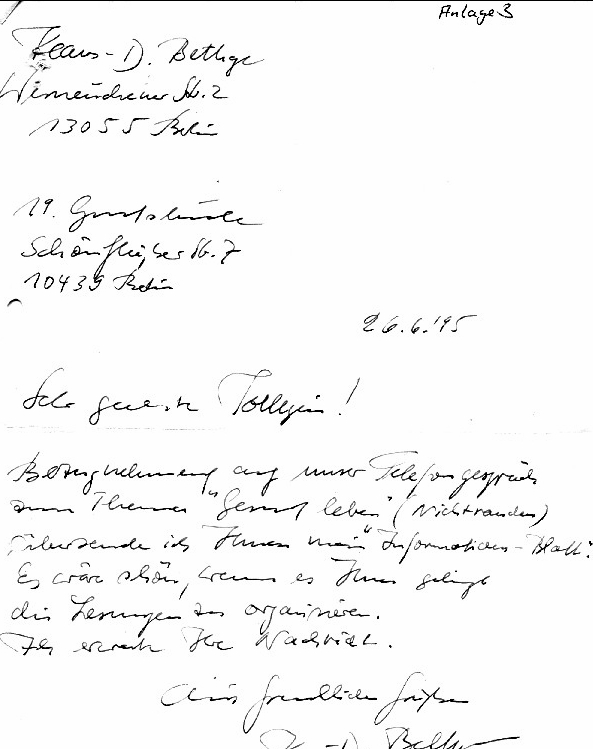 Anlage 3
Klaus-D. Bethge
Str. 2
13055 Berlin
19. Grundschule
Schönfließer Str. 7
10439 Berlin
26.6.'95
Sehr geehrte Kollegin!
Bezugnehmend auf unser Telefongespräch
zum Thema "Gesund leben" (Nichtrauchen)
übersende ich Ihnen mein "Informations-Blatt".
Es wäre schön, wenn es Ihnen gelingt
die Lesungen zu organisieren.
Ich erwarte Ihre Nachricht.
freundlichen Grüßen
K.-D. Bethge